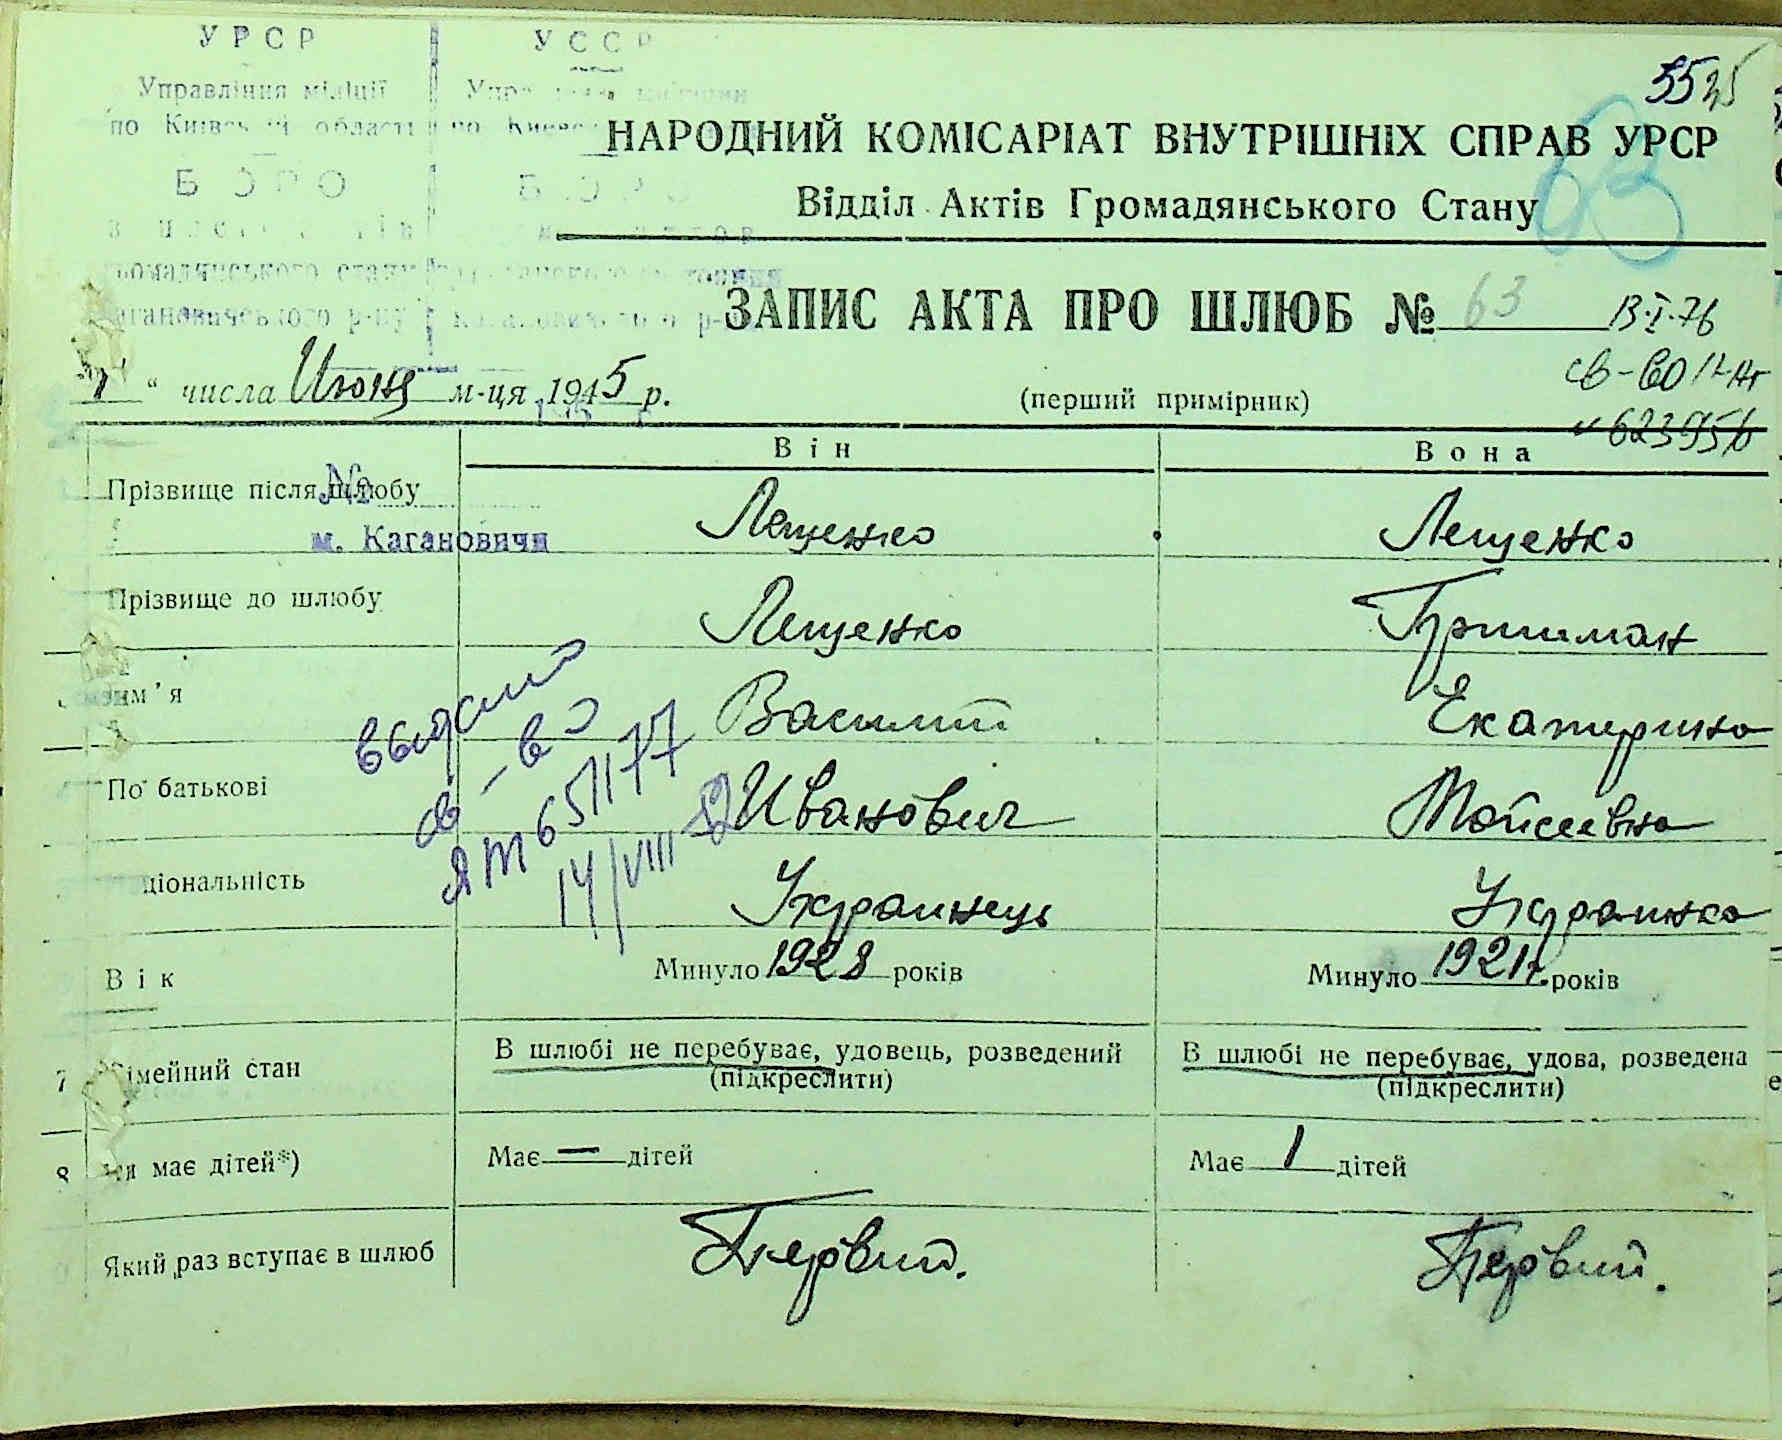 УРСР УССР
Управління міліції
по Київській області по Киевс
БЮРО БЮРО
громадянського стану
Кагановичського р-ну Кагановичского р-
5525
НАРОДНИЙ КОМІСАРІАТ ВНУТРІШНІХ СПРАВ УРСР
Відділ Актів Громадянського Стану
63
ЗАПИС АКТА ПРО ШЛЮБ № 63
13.I.76
" числа Июня м-ця 1945 р.
(перший примірник)
св-во
623956
Він Вона
Прізвище після шлюбу Лещенко Лещенко
№
м. Кагановичи
Прізвище до шлюбу Лещенко
Ім'я Василий Екатерина
По батькові Иванович Мойсеевна
Національність Украинець Украинка
Вік Минуло 1928 років Минуло 1921г. років
7 Сімейний стан В шлюбі не перебуває, удовець, розведений В шлюбі не перебуває, удова, розведена
(підкреслити) (підкреслити)
8 Чи має дітей*) Має — дітей Має 1 дітей
Який раз вступає в шлюб Первий. Первий.
св-во
ЯТ 651177
14/VIII 52